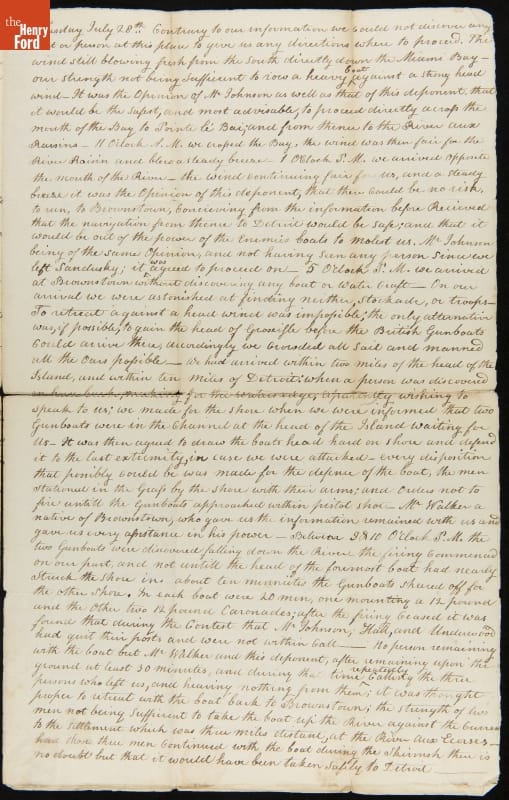 the
Henry
Ford
July 28th Contrary to our information we could not discover any
or person at this place to give us any directions where to proceed. The
wind still blowing fresh from the South directly down the Miami Bay—
our strength not being Sufficient to row a heavy Boat against a strong head
wind— It was the Opinion of Mr Johnson as well as that of this deponent, that
it would be the Safest, and most advisable, to proceed directly across the
mouth of the Bay to Pointe le Bai; and from thence to the River aux
Raisins— 11 OClock A.M. we crossed the Bay, the wind was then fair for the
River Raisin and blew a steady breeze— 1 OClock P.M. we arrived opposite
the mouth of the River— the wind continuing fair for us, and a steady
breeze it was the Opinion of this deponent, that there could be no risk,
to run, to Brownstown, Conceiving from the information before Received
that the navigation from thence to Detroit would be safe; and that it
would be out of the power of the Enemies boats to molest us. Mr Johnson
being of the same Opinion, and not having seen any person Since we
left Sandusky; it was agreed to proceed on— 5 OClock P.M. we arrived
at Brownstown without discovering any boat or water Craft— On our
arrival we were astonished at finding neither, Stockade, or troops—
To retreat against a head wind was impossible, the only alternative
was, if possible, to gain the head of Grosse Isle before the British Gunboats
Could arrive there, accordingly we Crowded all Sail and manned
all the Oars possible— we had arrived within two miles of the head of the
Island, and within ten miles of Detroit: when a person was discovered
on horse back, making for the waters edge, apparently wishing to
speak to us; we made for the shore when we were informed that two
Gunboats were in the Channel at the head of the Island waiting for
us— It was then agreed to draw the boats head hard on shore and defend
it to the last extremity, in case we were attacked— every disposition
that possibly could be was made for the defence of the boat, the men
Stationed in the Grass by the shore with their arms; and Orders not to
fire untill the Gunboats approached within pistol shot— Mr Walker a
native of Brownstown, who gave us the information remained with us and
gave us every assistance in his power— Between 9 & 10 OClock P.M. the
two Gunboats were discovered falling down the River the firing Commenced
on our part, and not untill the head of the foremost boat had nearly
Struck the shore in about ten minutes the Gunboats sheared off for
the other Shore. In each boat were 20 men, one mounting a 12 pound
and the Other two 12 pound Caronades; after the firing Ceased it was
found that during the Contest that Mr Johnson, Hall, and Underwood
had quit their posts and were not within Call— no person remaining
with the boat but Mr Walker and this deponent, after remaining upon the
ground at least 30 minutes, and during that time repeatedly Calling the three
persons who left us, and hearing nothing from them; it was thought
proper to retreat with the boat back to Brownstown; the strength of two
men not being Sufficient to take the boat up the River against the Current
to the Settlement which was three miles distant, at the River Aux Ecorses—
had these three men Continued with the boat during the Skirmish there is
no doubt but that it would have been taken Safely to Detroit—